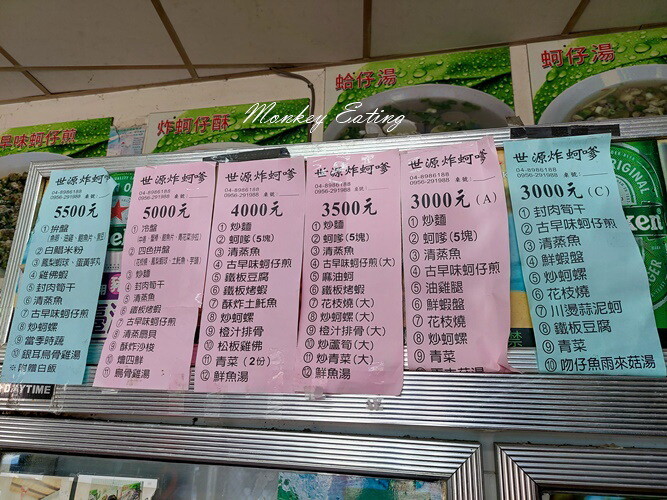 Monkey Eating
早味蚵仔煎
炸蚵仔酥
蛤仔湯
蚵仔湯
世源炸蚵嗲
04-8986188
0956-291988
5500元
①拚盤
②白鯧米粉
③鳳梨蝦球、蛋黃芋丸
④雞佛蝦
⑤封肉筍干
⑥清蒸魚
⑦古早味蚵仔煎
⑧炒蚵螺
⑨當季時蔬
⑩銀耳烏骨雞湯
※附贈白飯
DAYTIME
世源炸蚵嗲
04-8986188
0956-291988 桌號:
5000元
①冷盤
②四色拼盤
③炒麵
④封肉筍干
⑤清蒸魚
⑥鐵板烤蝦
⑦古早味蚵仔煎
⑧清蒸扇貝
⑨酥炸沙梭
⑩燴四鮮
⑪烏骨雞湯
世源炸蚵嗲
04-8986188
0956-291988 桌號:
4000元
①炒麵
②蚵嗲(5塊)
③清蒸魚
④古早味蚵仔煎
⑤鐵板豆腐
⑥鐵板烤蝦
⑦酥炸土魠魚
⑧炒蚵螺
⑨橙汁排骨
⑩松板雞佛
⑪青菜(2份)
⑫鮮魚湯
世源炸蚵嗲
04-8986188
0956-291988 桌號:
3500元
①炒麵
②蚵嗲(5塊)
③清蒸魚
④古早味蚵仔煎
⑤麻油蚵
⑥鐵板烤蝦
⑦花枝燒(大)
⑧炒蚵螺(大)
⑨橙汁排骨(大)
⑩炒蘆筍(大)
⑪炒青菜(大)
⑫鮮魚湯
世源炸蚵嗲
04-8986188
0956-291988 桌號:
3000元(A)
①炒麵
②蚵嗲(5塊)
③清蒸魚
④古早味蚵仔煎
⑤油雞腿
⑥鮮蝦盤
⑦花枝燒
⑧炒蚵螺
⑨青菜
世源炸蚵嗲
04-8986188
0956-291988 桌號:
3000元(C)
①封肉筍干
②古早味蚵仔煎
③清蒸魚
④鮮蝦盤
⑤炒蚵螺
⑥花枝燒
⑦川燙蒜泥蚵
⑧鐵板豆腐
⑨青菜
⑩吻仔魚雨來菇湯